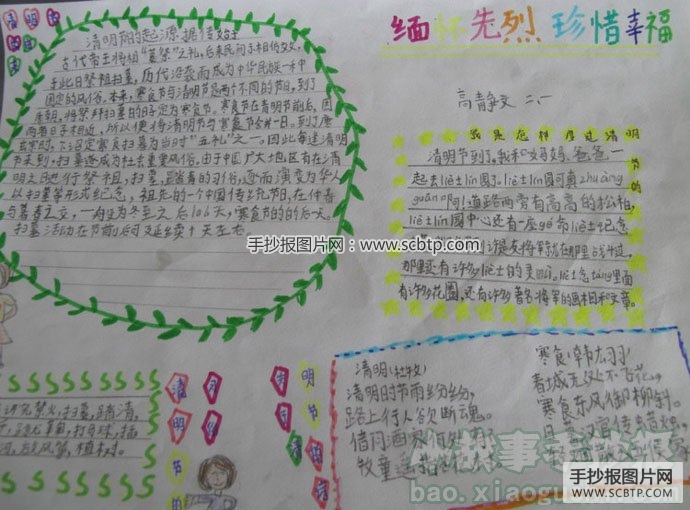 清明节
缅怀先烈 珍惜幸福
高静文 二、1
清明节的起源,据传始于
古代帝王将相"墓祭"之礼,后来民间亦相仿效,
于此日祭祖扫墓,历代沿袭而成为中华民族一种
固定的风俗。本来,寒食节与清明节是两个不同的节日,到了
唐朝,将祭拜扫墓的日子定为寒食节。寒食节在清明节前后,因
两者日子相近,所以便将清明节与寒食节合并一日。到了唐
玄宗时,下诏定寒食扫墓为当时"五礼"之一。因此每逢清明
节来到,扫墓遂成为社会重要风俗。由于中国广大地区有在清
明之日进行祭祖,扫墓,踏青的习俗,逐渐演变为华人
以扫墓等形式纪念,祖先的一个中国传统节日,在仲春
与暮春之交,一为立为冬至之后106天,寒食节的后一天。
扫墓活动在节前后可延续十天左右
我是怎样度过清明
清明节到了,我和妈妈、爸爸一
起去liè shì lín园了。liè shì lín园可真zhuàng
guān阿!道路两旁有高高的松柏,
liè shì lín园中心还有一座gé命liè shì纪念
那里还有许多liè士的灵
有许多花圈,还有许多著名将军的画相和文章。
手抄报图片网:www.scbtp.com
清明(杜牧)
清明的节雨纷纷,
路上行人欲断魂。
借问酒家何处有,
牧童遥指
寒食(韩翃)
春城无处不飞花,
寒食东风御柳斜。
日暮汉宫传
清明节
清明节
扫墓,踏清,
打马球,插
放风筝,植树。
小故事手抄报
bao.xiaogushi
手抄报图片网
WWW.SCBTP.COM